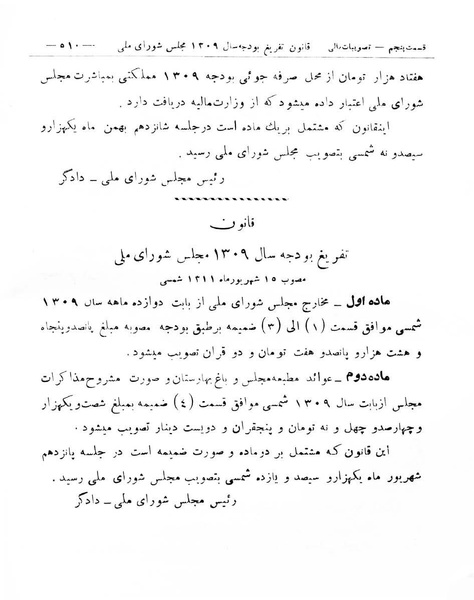 قسمت پنجم — تصویبات مالی   قانون تفریغ بودجه سال ۱۳۰۹ مجلس شورای ملی   — ۵۱۰ —
هفتاد هزار تومان از محل صرفه جوئی بودجه ۱۳۰۹ مملکتی بمباشرت مجلس
شورای ملی اعتبار داده میشود که از وزارت مالیه دریافت دارد .
اینقانون که مشتمل بریك ماده است درجلسه شانزدهم بهمن ماه یکهزارو
سیصدو نه شمسی بتصویب مجلس شورای ملی رسید .
رئیس مجلس شورای ملی ـ دادگر
قانون
تفریغ بودجه سال ۱۳۰۹ مجلس شورای ملی
مصوب ۱۵ شهریورماه ۱۳۱۱ شمسی
ماده اول ـ مخارج مجلس شورای ملی از بابت دوازده ماهه سال ۱۳۰۹
شمسی موافق قسمت (۱) الی (۳) ضمیمه برطبق بودجه مصوبه مبلغ پانصدوپنجاه
و هشت هزارو پانصدو هفت تومان و دو قران تصویب میشود .
ماده دوم ـ عوائد مطبعه مجلس و باغ بهارستان و صورت مشروح مذاکرات
مجلس ازبابت سال ۱۳۰۹ شمسی موافق قسمت (٤) ضمیمه بمبلغ شصت ویکهزار
وچهارصدو چهل و نه تومان و پنجقران و دویست دینار تصویب میشود .
این قانون که مشتمل بر دوماده و صورت ضمیمه است در جلسه پانزدهم
شهریور ماه یکهزارو سیصد و یازده شمسی بتصویب مجلس شورای ملی رسید .
رئیس مجلس شورای ملی ـ دادگر